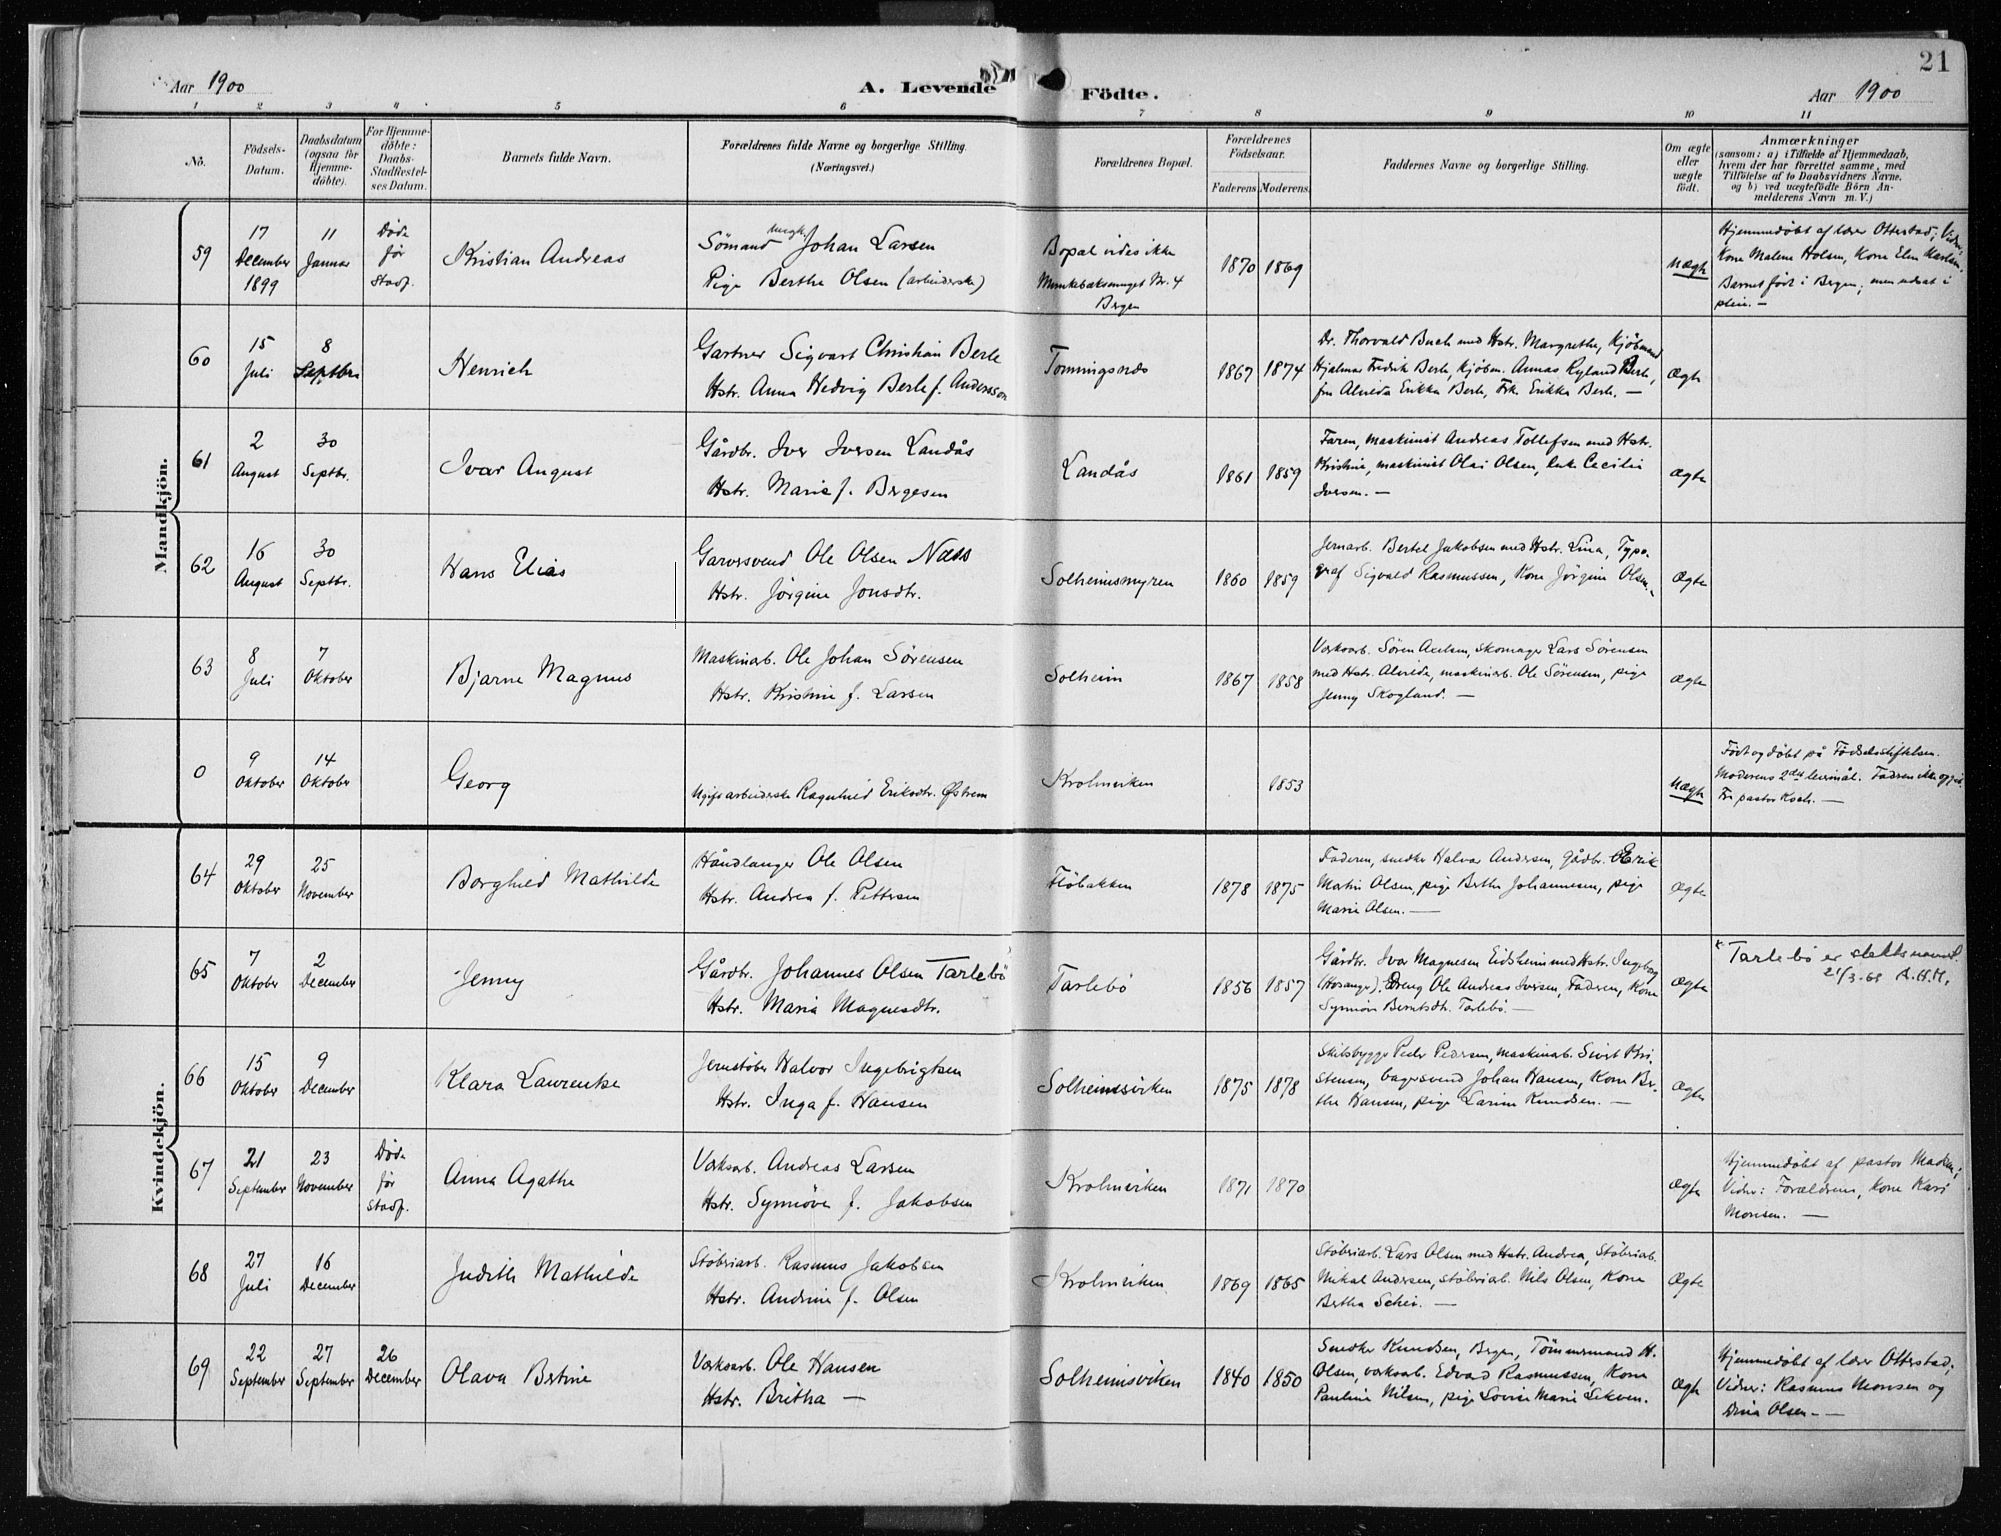 21
Aar 1900
A. Levende Födte.
Aar 1900
1 2 3 4 5 6 7 8 9 10 11
No.
Födsels-
Datum.
Daabsdatum
(ogsaa for
Hjemme-
döbte).
For Hjemme-
döbte:
Daabs-
Stadfæstel-
ses Datum.
Barnets fulde Navn.
Forældrenes fulde Navne og borgerlige Stilling.
(Næringsvei.)
Forældrenes Bopæl.
Forældrenes
Födselsaar.
Faderens. Moderens.
Faddernes Navne og borgerlige Stilling.
Om ægte
eller
uægte
födt.
Anmærkninger
(saasom: a) i Tilfælde af Hjemmedaab,
hvem der har forrettet samme, med
Tilföielse af to Daabsvidners Navne,
og b) ved uægtefödte Börn An-
melderens Navn m. V.)
Mandkjön.
59
17
December
1899
11
Januar
Døde
før
Stadf.
Kristian Andreas
Sömand ungk. Johan Larsen
Pige Berthe Olsen (arbeiderske)
Bopal vides ikke
Munkebæksmuget Nr. 4
Bergen
1870 1869
uægte
Hjemmedøbt af lærer Otterstad; Vidn:
Kone Malene Holsen, Kone Elen
Barnet født i Bergen, men udsat i
pleie. —
60
15
Juli
8
Septbr.
Henrich
Gartner Sigvart Christian Berle
Hstr. Anna Hedvig Berle f. Andersson
Tonningsnæs
1867 1874
Dr. Thorvald Buch med Hstr. Margrethe, Kjøbmand
Hjalmar Fredrik Berle, kjøbm. Annas Ryland Berle,
fru Alvilda Erikka Berle, Frk. Erikka Berle. —
Ægte
61
2
August
30
Septbr.
Ivar August
Gårdbr. Iver Iversen Landås
Hstr. Marie f. Bergesen
Landås
1861 1859
Faren, maskinist Andreas Tollefsen med Hstr.
Kristine, maskinist Olai Olsen, Enke Cecilie
Iversen. —
Ægte
62
16
August
30
Septbr.
Hans Elias
Garversvend Ole Olsen Næss
Hstr. Jørgine Jonsdtr.
Solheimsmyren
1860 1859
Jernarb. Bertel Jakobsen med Hstr. Lina, Typo-
graf Sigvald Rasmussen, Kone Jørgine Olsen. —
Ægte
63
8
Juli
7
Oktober
Bjarne Magnus
Maskinarb. Ole Johan Sørensen
Hstr. Kristine f. Larsen
Solheim
1867 1858
Værksarb. Søren Axelsen, skomager Lars Sørensen
med Hstr. Alvilde, maskinarb. Ole Sørensen, pige
Jenny Skogland. —
Ægte
0
9
Oktober
14
Oktober
Georg
Ugift arbeiderske Ragnhild Eriksdtr. Østrem
Krohnviken
1853
uægte
Født og døbt på Fødselsstiftelsen.
Moderens 2det leiermål. Faderen ikke opgit.
Fr. pastor Koch. —
Kvindekjön.
64
29
Oktober
25
November
Borghild Mathilde
Håndlanger Ole Olsen
Hstr. Andrea f. Pettersen
Fløbakken
1878 1875
Faderen, snedker Halvor Andersen, gårdbr. Erik
Matin Olsen, pige Berthe Johannesen, pige
Marie Olsen. —
Ægte
65
7
Oktober
2
December
Jenny
Gårdbr. Johannes Olsen Tarlebö
Hstr. Maria Magnesdtr.
Tarlebö
1856 1857
Gårdbr. Ivar Magnesen Eidsheim med Hstr. Ingeborg
(Hosanger), Dreng Ole Andreas Iversen, Faderen, Kone
Synnöve Berntsdtr. Tarlebö. —
Ægte
Tarlebö er slektsnavnet.
21/3-68 A.H.M.
66
15
Oktober
9
December
Klara Lawrentze
Jernstøber Halvor Ingebrigtsen
Hstr. Inga f. Hansen
Solheimsviken
1875 1878
Skibsbygger Peder Pedersen, maskinarb. Sivert Kri-
stensen, bagersvend Johan Hansen, Kone Ber-
the Hansen, pige Larine Knudsen. —
Ægte
67
21
September
23
November
Døde
før
Stadf.
Anna Agathe
Værksarb. Andreas Larsen
Hstr. Synnöve f. Jakobsen
Krohnviken
1871 1870
Ægte
Hjemmedøbt af pastor Madsen;
Vidner: Forældrene, Kone Kari
Monsen. —
68
27
Juli
16
December
Judith Mathilde
Støberiarb. Rasmus Jakobsen
Hstr. Andrine f. Olsen
Krohnviken
1869 1865
Støberiarb. Lars Olsen med Hstr. Andrea, Støberiarb.
Mikal Andersen, støberiarb. Nils Olsen, Kone
Bertha Schei. —
Ægte
69
22
September
27
September
26
December
Olava Bertine
Værksarb. Ole Hansen
Hstr. Britha —
Solheimsviken
1840 1850
Snedker Knudsen, Bergen, Tømmermand H.
Olsen, værksarb. Edvard Rasmussen, Kone
Pauline Nilsen, pige Lovise Marie Lekven.
Ægte
Hjemmedøbt af lærer Otterstad;
Vidner: Rasmus Monsen og
Dina Olsen. —